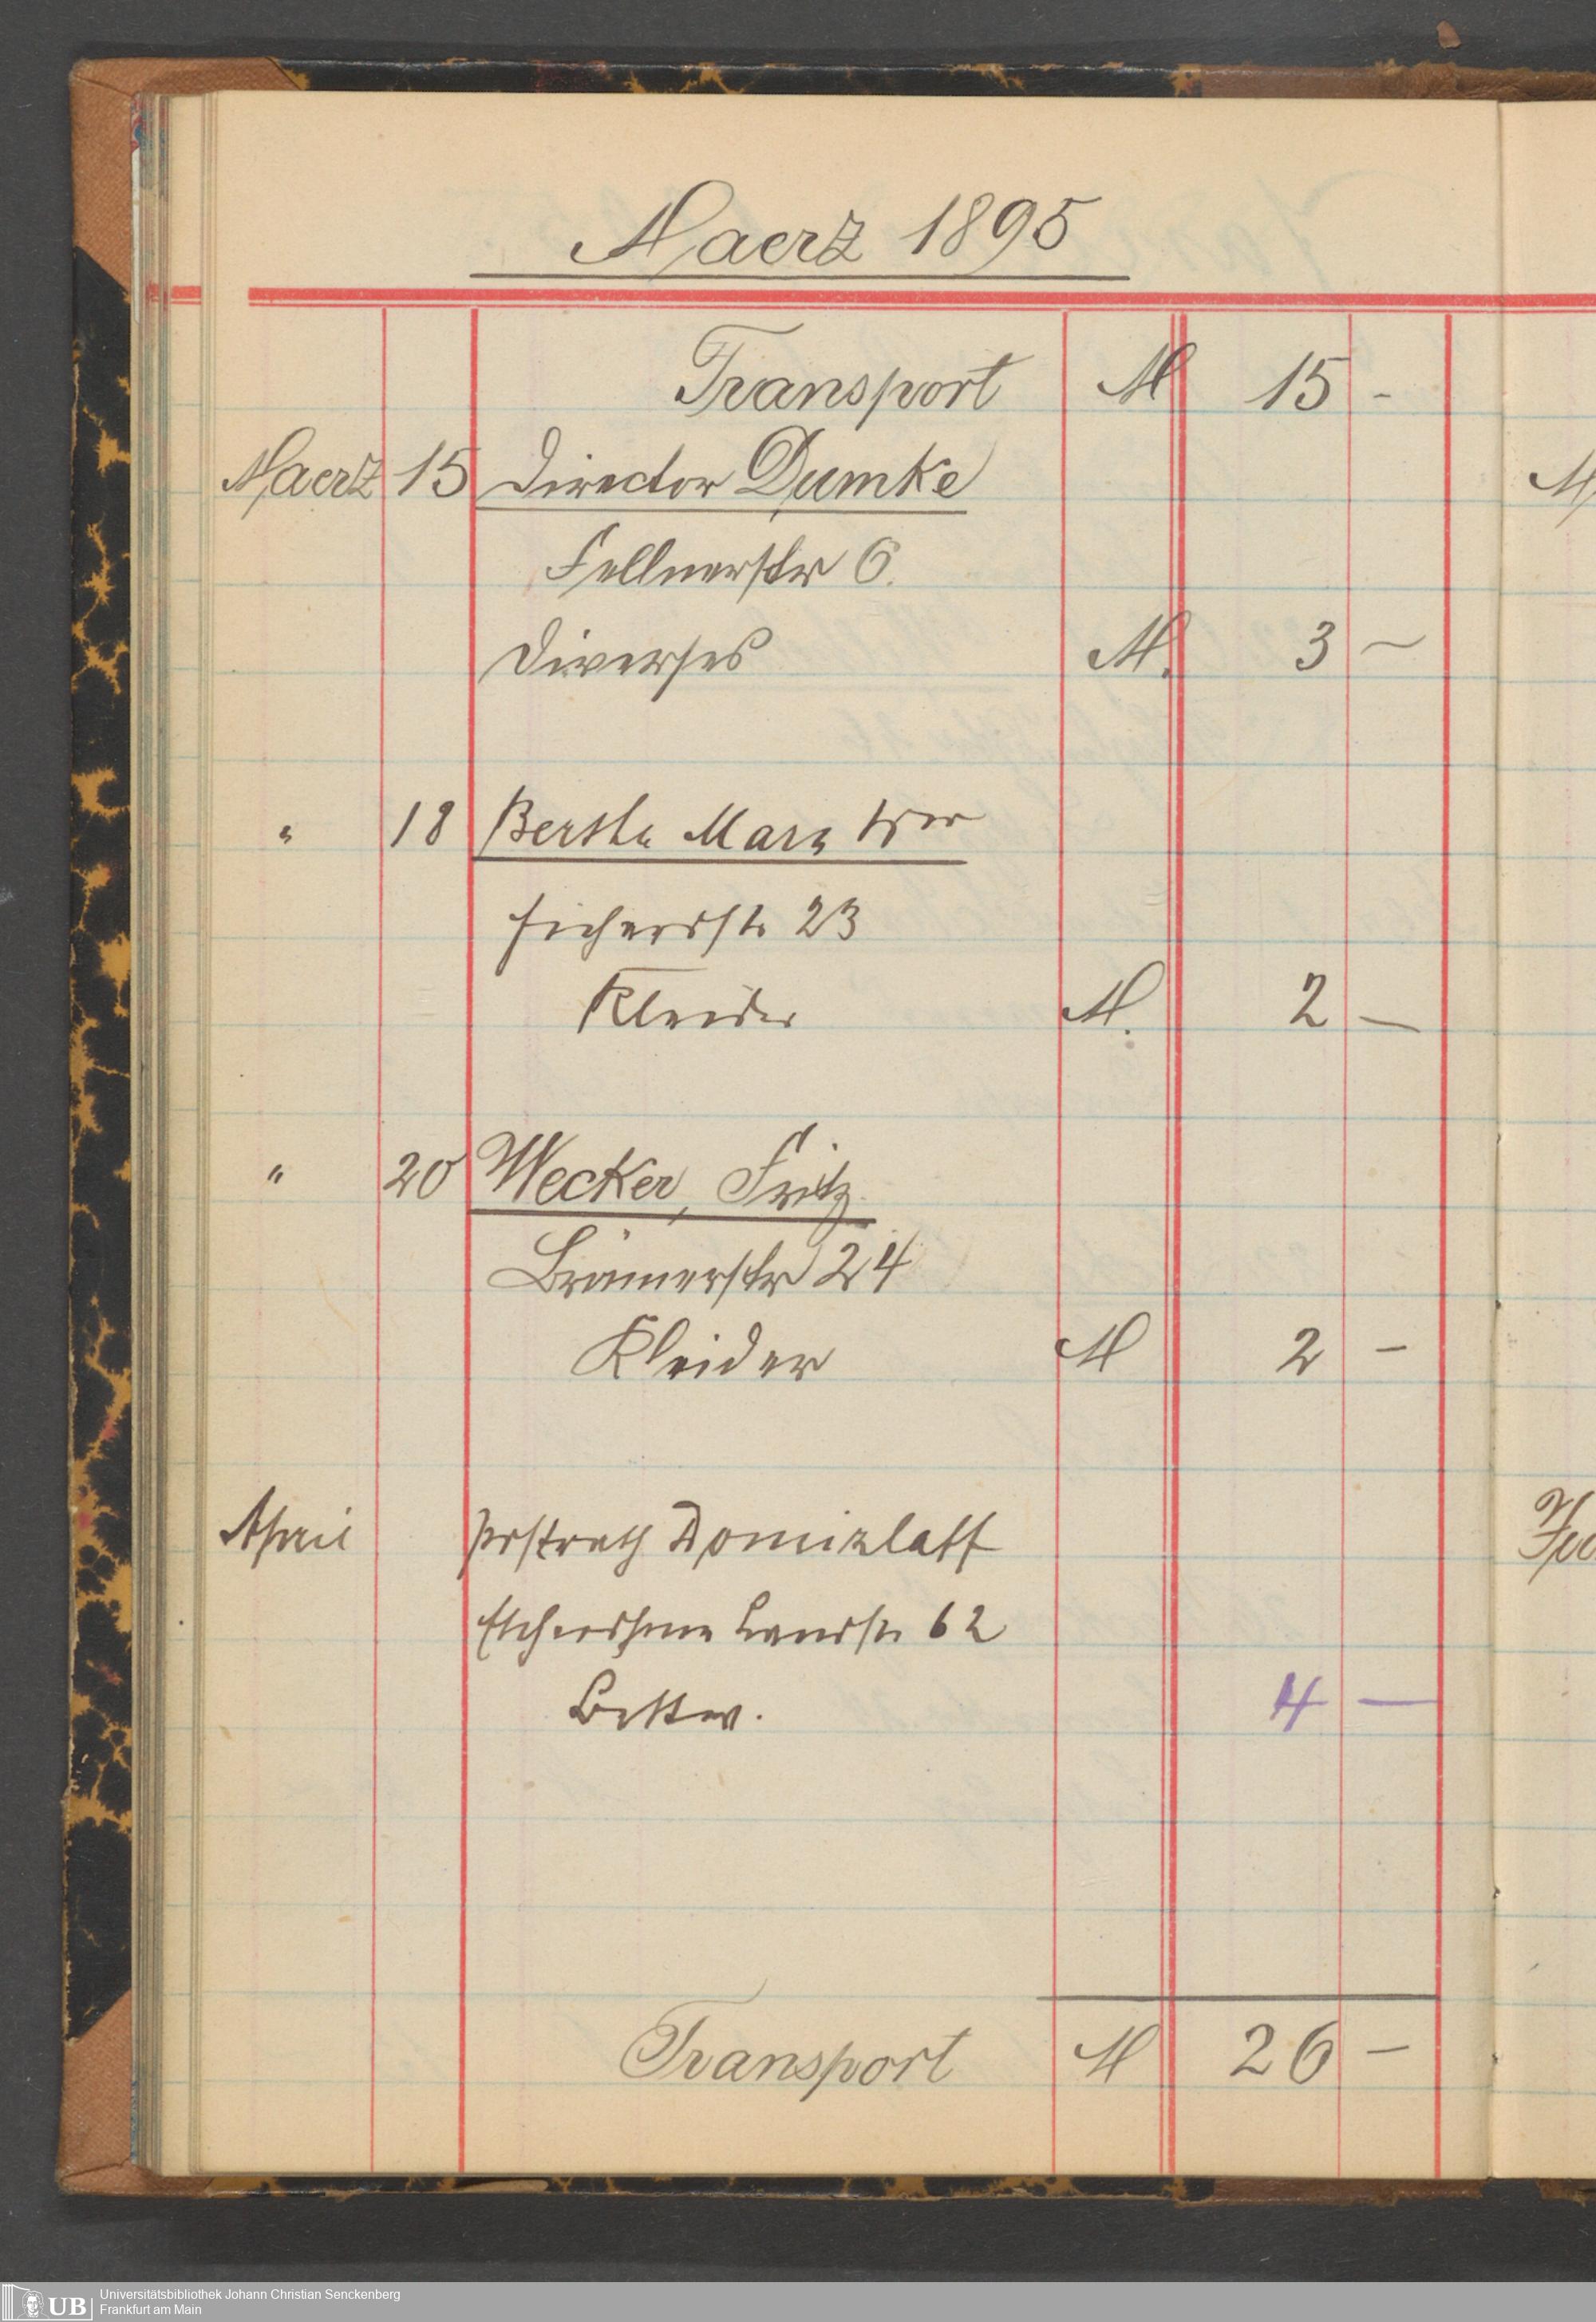 Maerz 1895
Transport M 15 -
Maerz 15 Director Dumke
Fellnerstr 6.
Diverses M. 3 -
" 18 Bertha Marx Wwe
Eichendstr 23
Kleider M. 2 -
" 20 Wecker, Fritz
Brömerstr 24
Kleider M 2 -
April Postrath Domizlaff
Eschersheimer Landstr 62
Bettw. 4 -
Transport M 26 -
UB Universitätsbibliothek Johann Christian Senckenberg
Frankfurt am Main